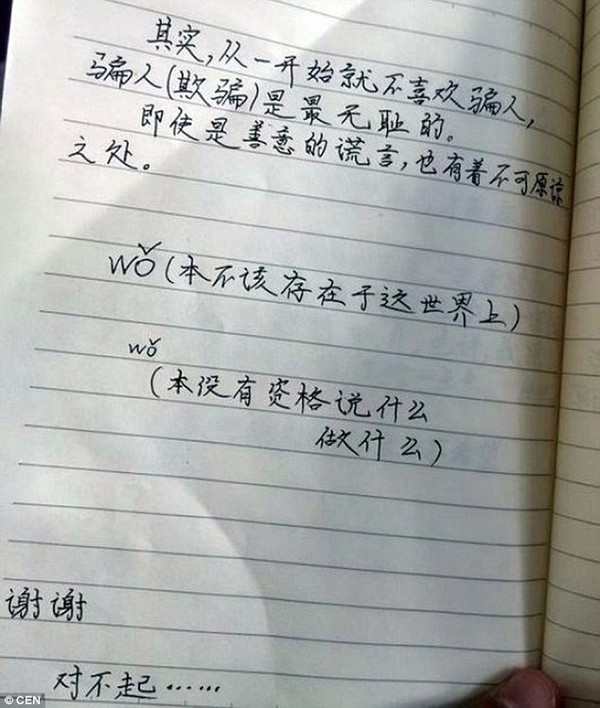 其实,从一开始就不喜欢骗人,
骗人(欺骗)是最无耻的。
即使是善意的谎言,也有着不可原谅
之处。
wǒ(本不该存在于这世界上)
wǒ
(本没有资格说什么
做什么)
谢谢
对不起……
© CEN